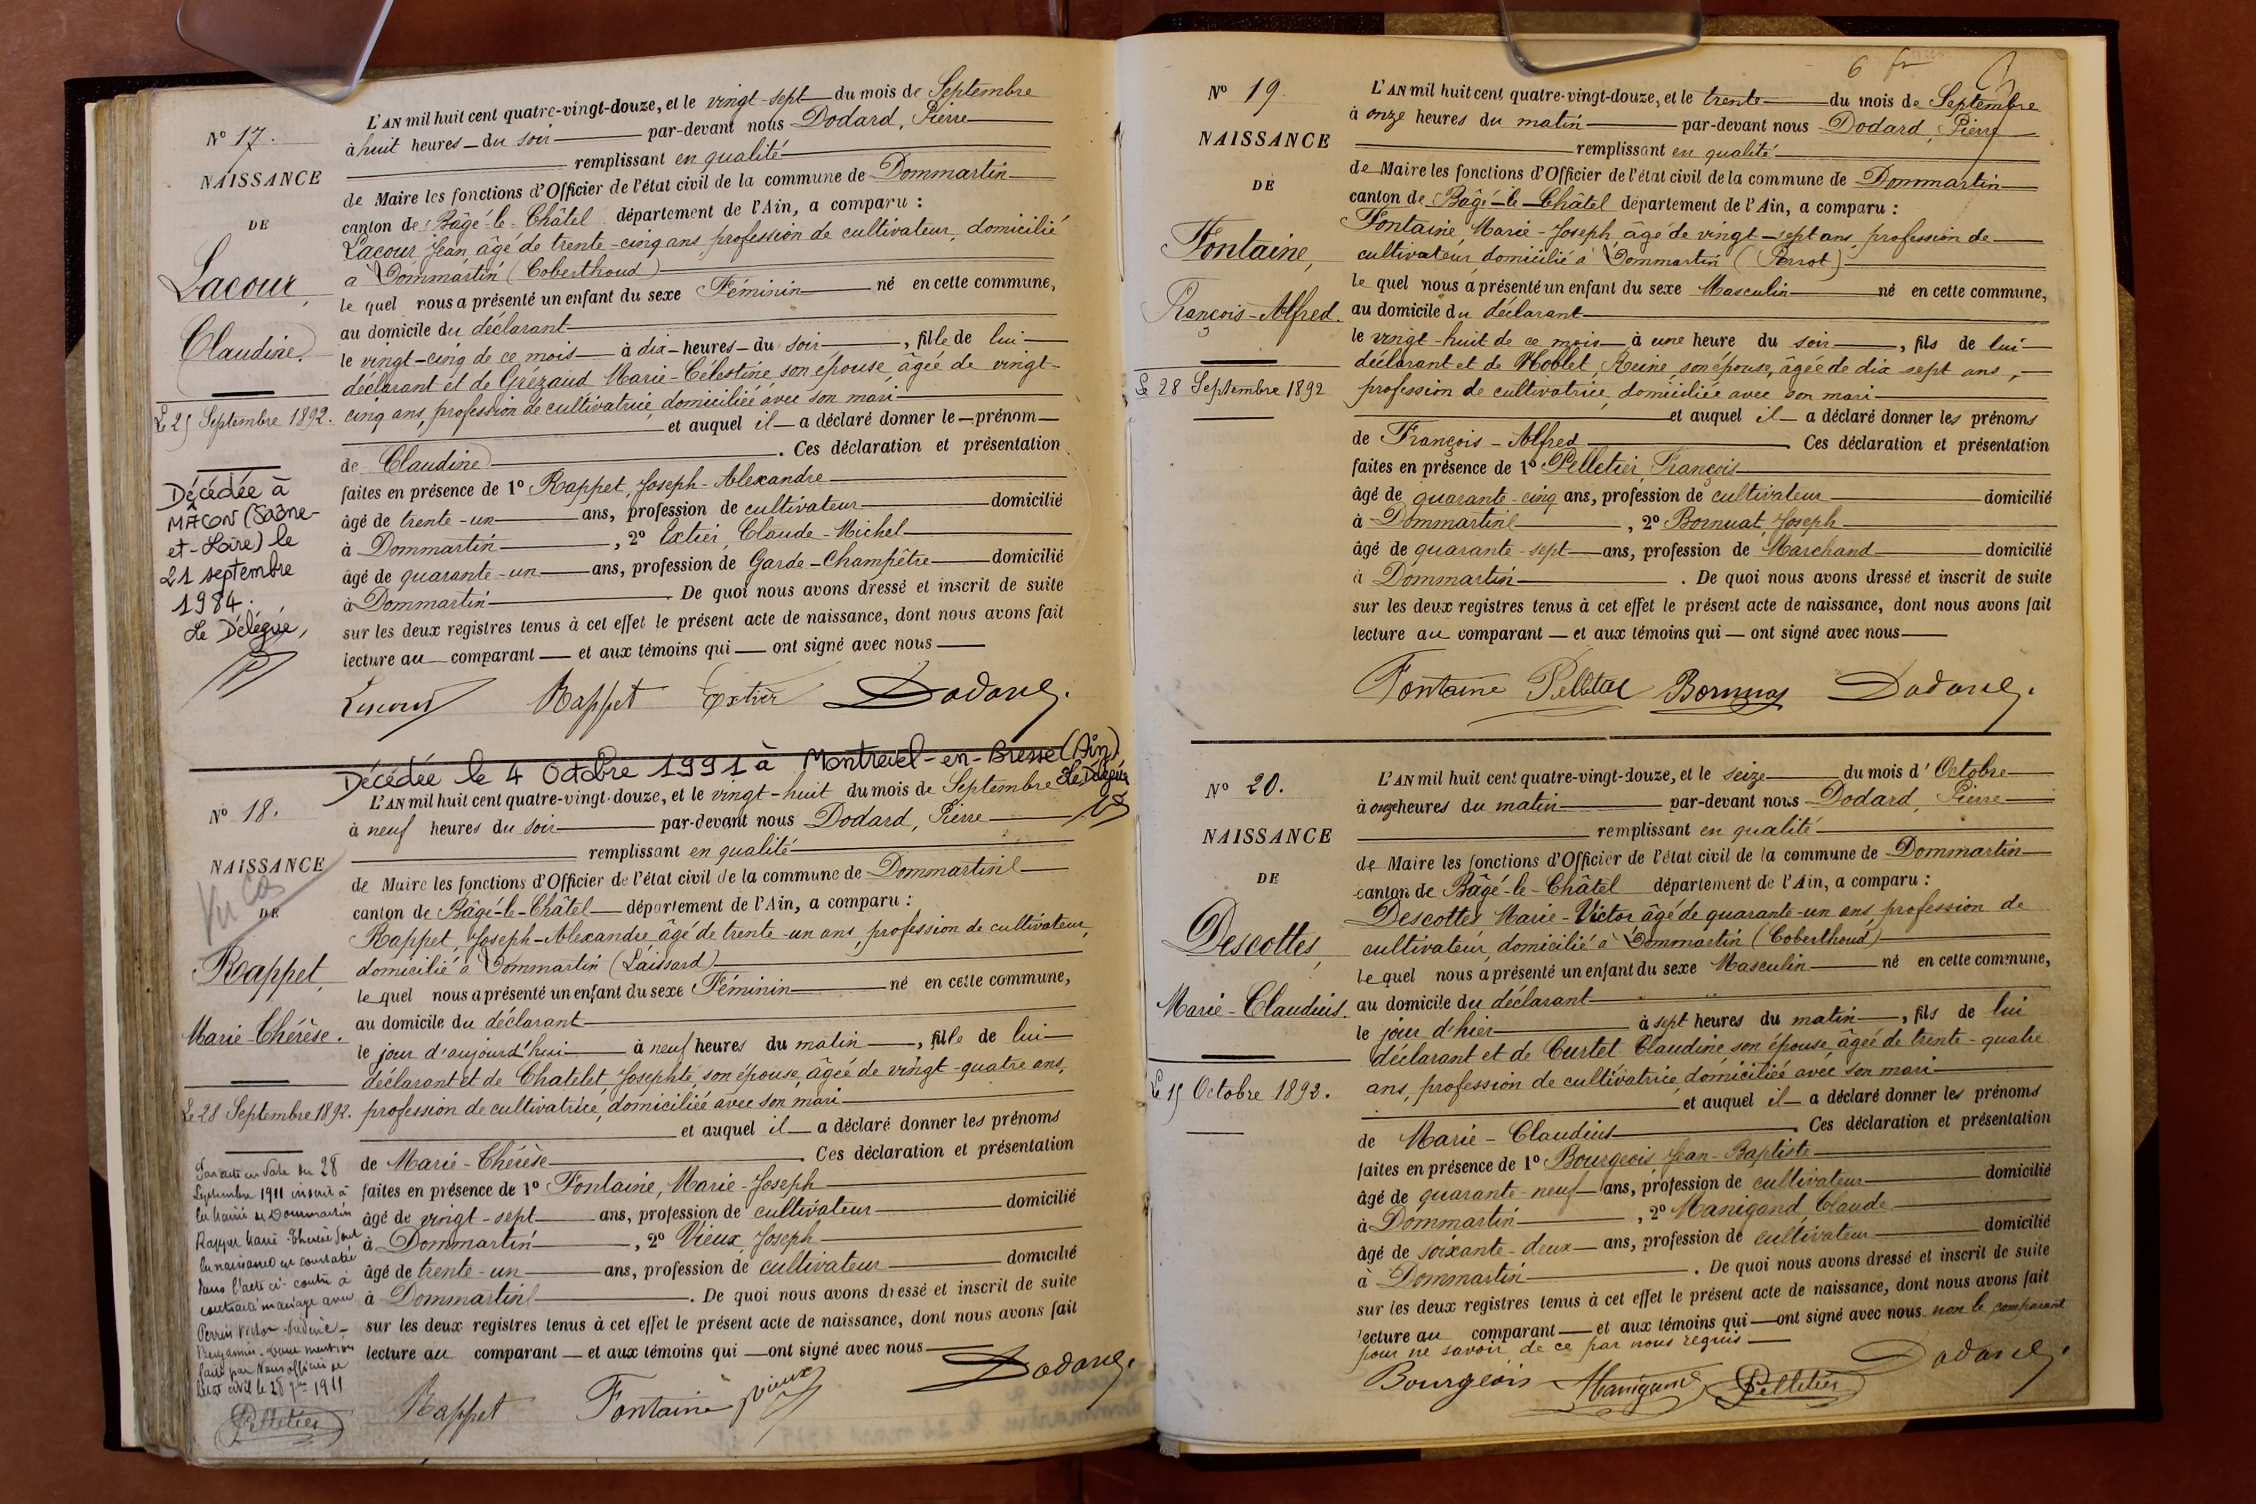 N° 17.
NAISSANCE
DE
Lacour
Claudine.
Le 25 Septembre 1892.
Décédée à
MÂCON (Saône-
et-Loire) le
21 septembre
1984.
Le Délégué,
L'AN mil huit cent quatre-vingt-douze, et le vingt-sept du mois de Septembre
à huit heures du soir par-devant nous Dodard, Pierre
remplissant en qualité
de Maire les fonctions d'Officier de l'état civil de la commune de Dommartin
canton de Bâgé-le-Châtel département de l'Ain, a comparu :
Lacour Jean âgé de trente-cinq ans, profession de cultivateur, domicilié
à Dommartin (Coberthoud)
le quel nous a présenté un enfant du sexe Féminin né en cette commune,
au domicile du déclarant
le vingt-cinq de ce mois à dix heures du soir, fille de lui
déclarant et de Grézaud Marie-Célestine son épouse âgée de vingt-
cinq ans, profession de cultivatrice, domiciliée avec son mari
et auquel il a déclaré donner le prénom
de Claudine. Ces déclaration et présentation
faites en présence de 1° Rappet, Joseph-Alexandre
âgé de trente-un ans, profession de cultivateur domicilié
à Dommartin, 2° Extier, Claude-Michel
âgé de quarante-un ans, profession de Garde-Champêtre domicilié
à Dommartin. De quoi nous avons dressé et inscrit de suite
sur les deux registres tenus à cet effet le présent acte de naissance, dont nous avons fait
lecture au comparant et aux témoins qui ont signé avec nous
Lacour Rappet Extier Dodard.
Décédée le 4 Octobre 1991 à Montrevel-en-Bresse (Ain)
Le Délégué
N° 18.
NAISSANCE
DE
Rappet,
Marie-Thérèse.
Le 28 Septembre 1892.
Par acte en date du 28
Septembre 1911 inscrit à
la mairie de Dommartin
Rappet Marie-Thérèse dont
la naissance est constatée
dans l'acte ci-contre a
contracté mariage avec
Perrin Victor
Benjamin. Dont mention
faite par Nous officier de
l'état civil le 28 7bre 1911
Pelletier
L'AN mil huit cent quatre-vingt-douze, et le vingt-huit du mois de Septembre
à neuf heures du soir par-devant nous Dodard, Pierre
remplissant en qualité
de Maire les fonctions d'Officier de l'état civil de la commune de Dommartin
canton de Bâgé-le-Châtel département de l'Ain, a comparu :
Rappet, Joseph-Alexandre âgé de trente-un ans, profession de cultivateur,
domicilié à Dommartin (Laissard)
le quel nous a présenté un enfant du sexe Féminin né en cette commune,
au domicile du déclarant
le jour d'aujourd'hui à neuf heures du matin, fille de lui
déclarant et de Chatelet Josephte, son épouse, âgée de vingt-quatre ans,
profession de cultivatrice, domiciliée avec son mari
et auquel il a déclaré donner les prénoms
de Marie-Thérèse. Ces déclaration et présentation
faites en présence de 1° Fontaine, Marie-Joseph
âgé de vingt-sept ans, profession de cultivateur domicilié
à Dommartin, 2° Vieux, Joseph
âgé de trente-un ans, profession de cultivateur domicilié
à Dommartin. De quoi nous avons dressé et inscrit de suite
sur les deux registres tenus à cet effet le présent acte de naissance, dont nous avons fait
lecture au comparant et aux témoins qui ont signé avec nous
Rappet Fontaine Vieux Dodard.
6
N° 19.
NAISSANCE
DE
Fontaine,
François-Alfred.
Le 28 Septembre 1892
L'AN mil huit cent quatre-vingt-douze, et le trente du mois de Septembre
à onze heures du matin par-devant nous Dodard, Pierre
remplissant en qualité
de Maire les fonctions d'Officier de l'état civil de la commune de Dommartin
canton de Bâgé-le-Châtel département de l'Ain, a comparu :
Fontaine Marie-Joseph, âgé de vingt-sept ans, profession de
cultivateur, domicilié à Dommartin (Perrot)
le quel nous a présenté un enfant du sexe Masculin né en cette commune,
au domicile du déclarant
le vingt-huit de ce mois à une heure du soir, fils de lui
déclarant et de Noblet, Reine, son épouse, âgée de dix sept ans,
profession de cultivatrice, domiciliée avec son mari
et auquel il a déclaré donner les prénoms
de François-Alfred. Ces déclaration et présentation
faites en présence de 1° Pelletier, François
âgé de quarante-cinq ans, profession de cultivateur domicilié
à Dommartin, 2° Bornuat, Joseph
âgé de quarante-sept ans, profession de Marchand domicilié
à Dommartin. De quoi nous avons dressé et inscrit de suite
sur les deux registres tenus à cet effet le présent acte de naissance, dont nous avons fait
lecture au comparant et aux témoins qui ont signé avec nous
Fontaine Pelletier Bornuat Dodard.
N° 20.
NAISSANCE
DE
Descottes,
Marie-Claudius.
Le 15 Octobre 1892.
L'AN mil huit cent quatre-vingt-douze, et le seize du mois d'Octobre
à onze heures du matin par-devant nous Dodard, Pierre
remplissant en qualité
de Maire les fonctions d'Officier de l'état civil de la commune de Dommartin
canton de Bâgé-le-Châtel département de l'Ain, a comparu :
Descottes Marie-Victor âgé de quarante-un ans, profession de
cultivateur, domicilié à Dommartin (Coberthoud)
le quel nous a présenté un enfant du sexe Masculin né en cette commune,
au domicile du déclarant
le jour d'hier à sept heures du matin, fils de lui
déclarant et de Curtet Claudine son épouse, âgée de trente-quatre
ans, profession de cultivatrice, domiciliée avec son mari
et auquel il a déclaré donner les prénoms
de Marie-Claudius. Ces déclaration et présentation
faites en présence de 1° Bourgeois, Jean-Baptiste
âgé de quarante-neuf ans, profession de cultivateur domicilié
à Dommartin, 2° Manigand, Claude
âgé de soixante-deux ans, profession de cultivateur domicilié
à Dommartin. De quoi nous avons dressé et inscrit de suite
sur les deux registres tenus à cet effet le présent acte de naissance, dont nous avons fait
lecture au comparant et aux témoins qui ont signé avec nous non le comparant
pour ne savoir de ce par nous requis
Bourgeois Manigand Pelletier Dodard.